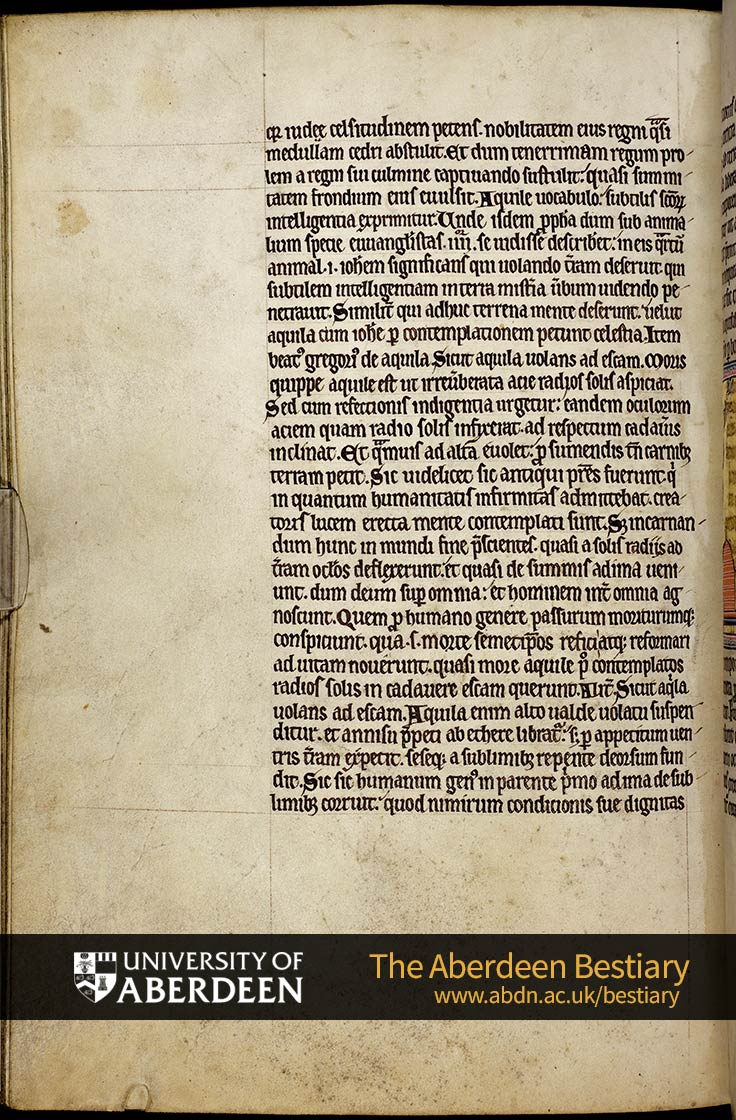 qꝫ iudeę celsitudinem petens. nobilitatem eius regni q̃si
medullam cedri abstulit. Et dum tenerrimam regum pro
lem a regni sui culmine captiuando sustulit: quasi summi
tatem frondium eius euulsit. Aquile uocabulo: subtilis scõꝝ
intelligentia exprimitur. Unde isdem ꝓpha dum sub anima
lium specie euuang̃listas .iiii. se uidisse describet: in eis q̃rtũ
animal .i. ioh̃em significans qui uolando t̃ram deseruit qui
subtilem intelligentiam interna mist̃ia ũbum uidendo pe
netrauit. Similit̃ qui adhuc terrena mente deserunt. uelut
aquila cum ioh̃e ꝑ contemplationem petunt celestia. Item
beatꝰ gregoriꝰ de aquila. Sicut aquila uolans ad escam. Moris
quippe aquile est ut irreũberata acie radios solis aspiciat.
Sed cum refectionis indigentia urgetur: eandem oculorum
aciem quam radio solis infixerat. ad respectum cadaũis
inclinat. Et q̃muis ad alta euolet: ꝓ sumendis tñ carnibꝫ
terram petit. Sic uidelicet sic antiqui pr̃es fuerunt q̇
in quantum humanitatis infirmitas admittebat. crea
toris lucem erecta mente contemplati sunt. Sꝫ incarnan
dum hunc in mundi fine p̃scientes. quasi a solis radijs ad
t̃ram oc̃los deflexerunt. et quasi de summis ad ima ueni
unt. dum deum suꝑ omnia: et hominem int̃ omnia ag
noscunt. Quem ꝓ humano genere passurum moriturumqꝫ
conspiciunt. qua .s. morte semetip̃os reficiatqꝫ reformari
ad uitam nouerunt. quasi more aquile p̃ contemplatos
radios solis in cadauere escam querunt. Alit̃. Sicut aq̇la
uolans ad escam. Aquila enim alto ualde uolatu suspen
ditur. et annisu p̃peti ab ethere librat̃. s; ꝑ appetitum uen
tris t̃ram expetit. seseqꝫ a sublimibꝫ repente deorsum fun
dit. Sic sic humanum genꝰ in parente p̃mo ad ima de sub
limibꝫ corruit. quod nimirum conditionis sue dignitas
UNIVERSITY OF
ABERDEEN
The Aberdeen Bestiary
www.abdn.ac.uk/bestiary